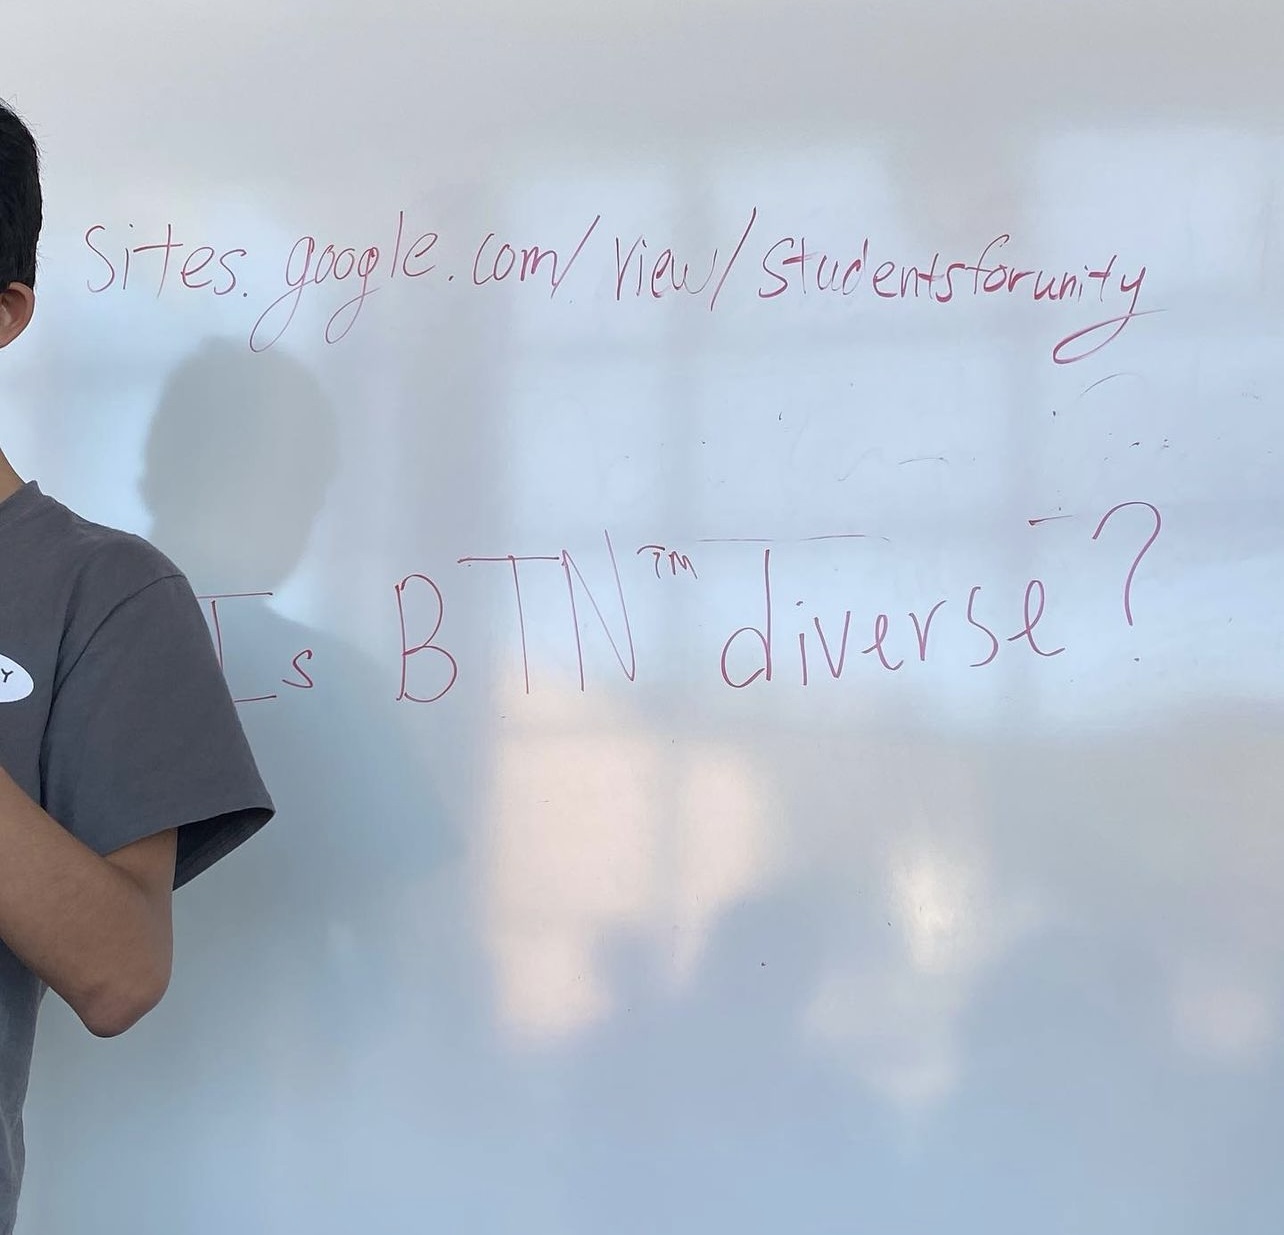 Sites.google.com/view/studentsforunity
Is BTN™ diverse?
Y